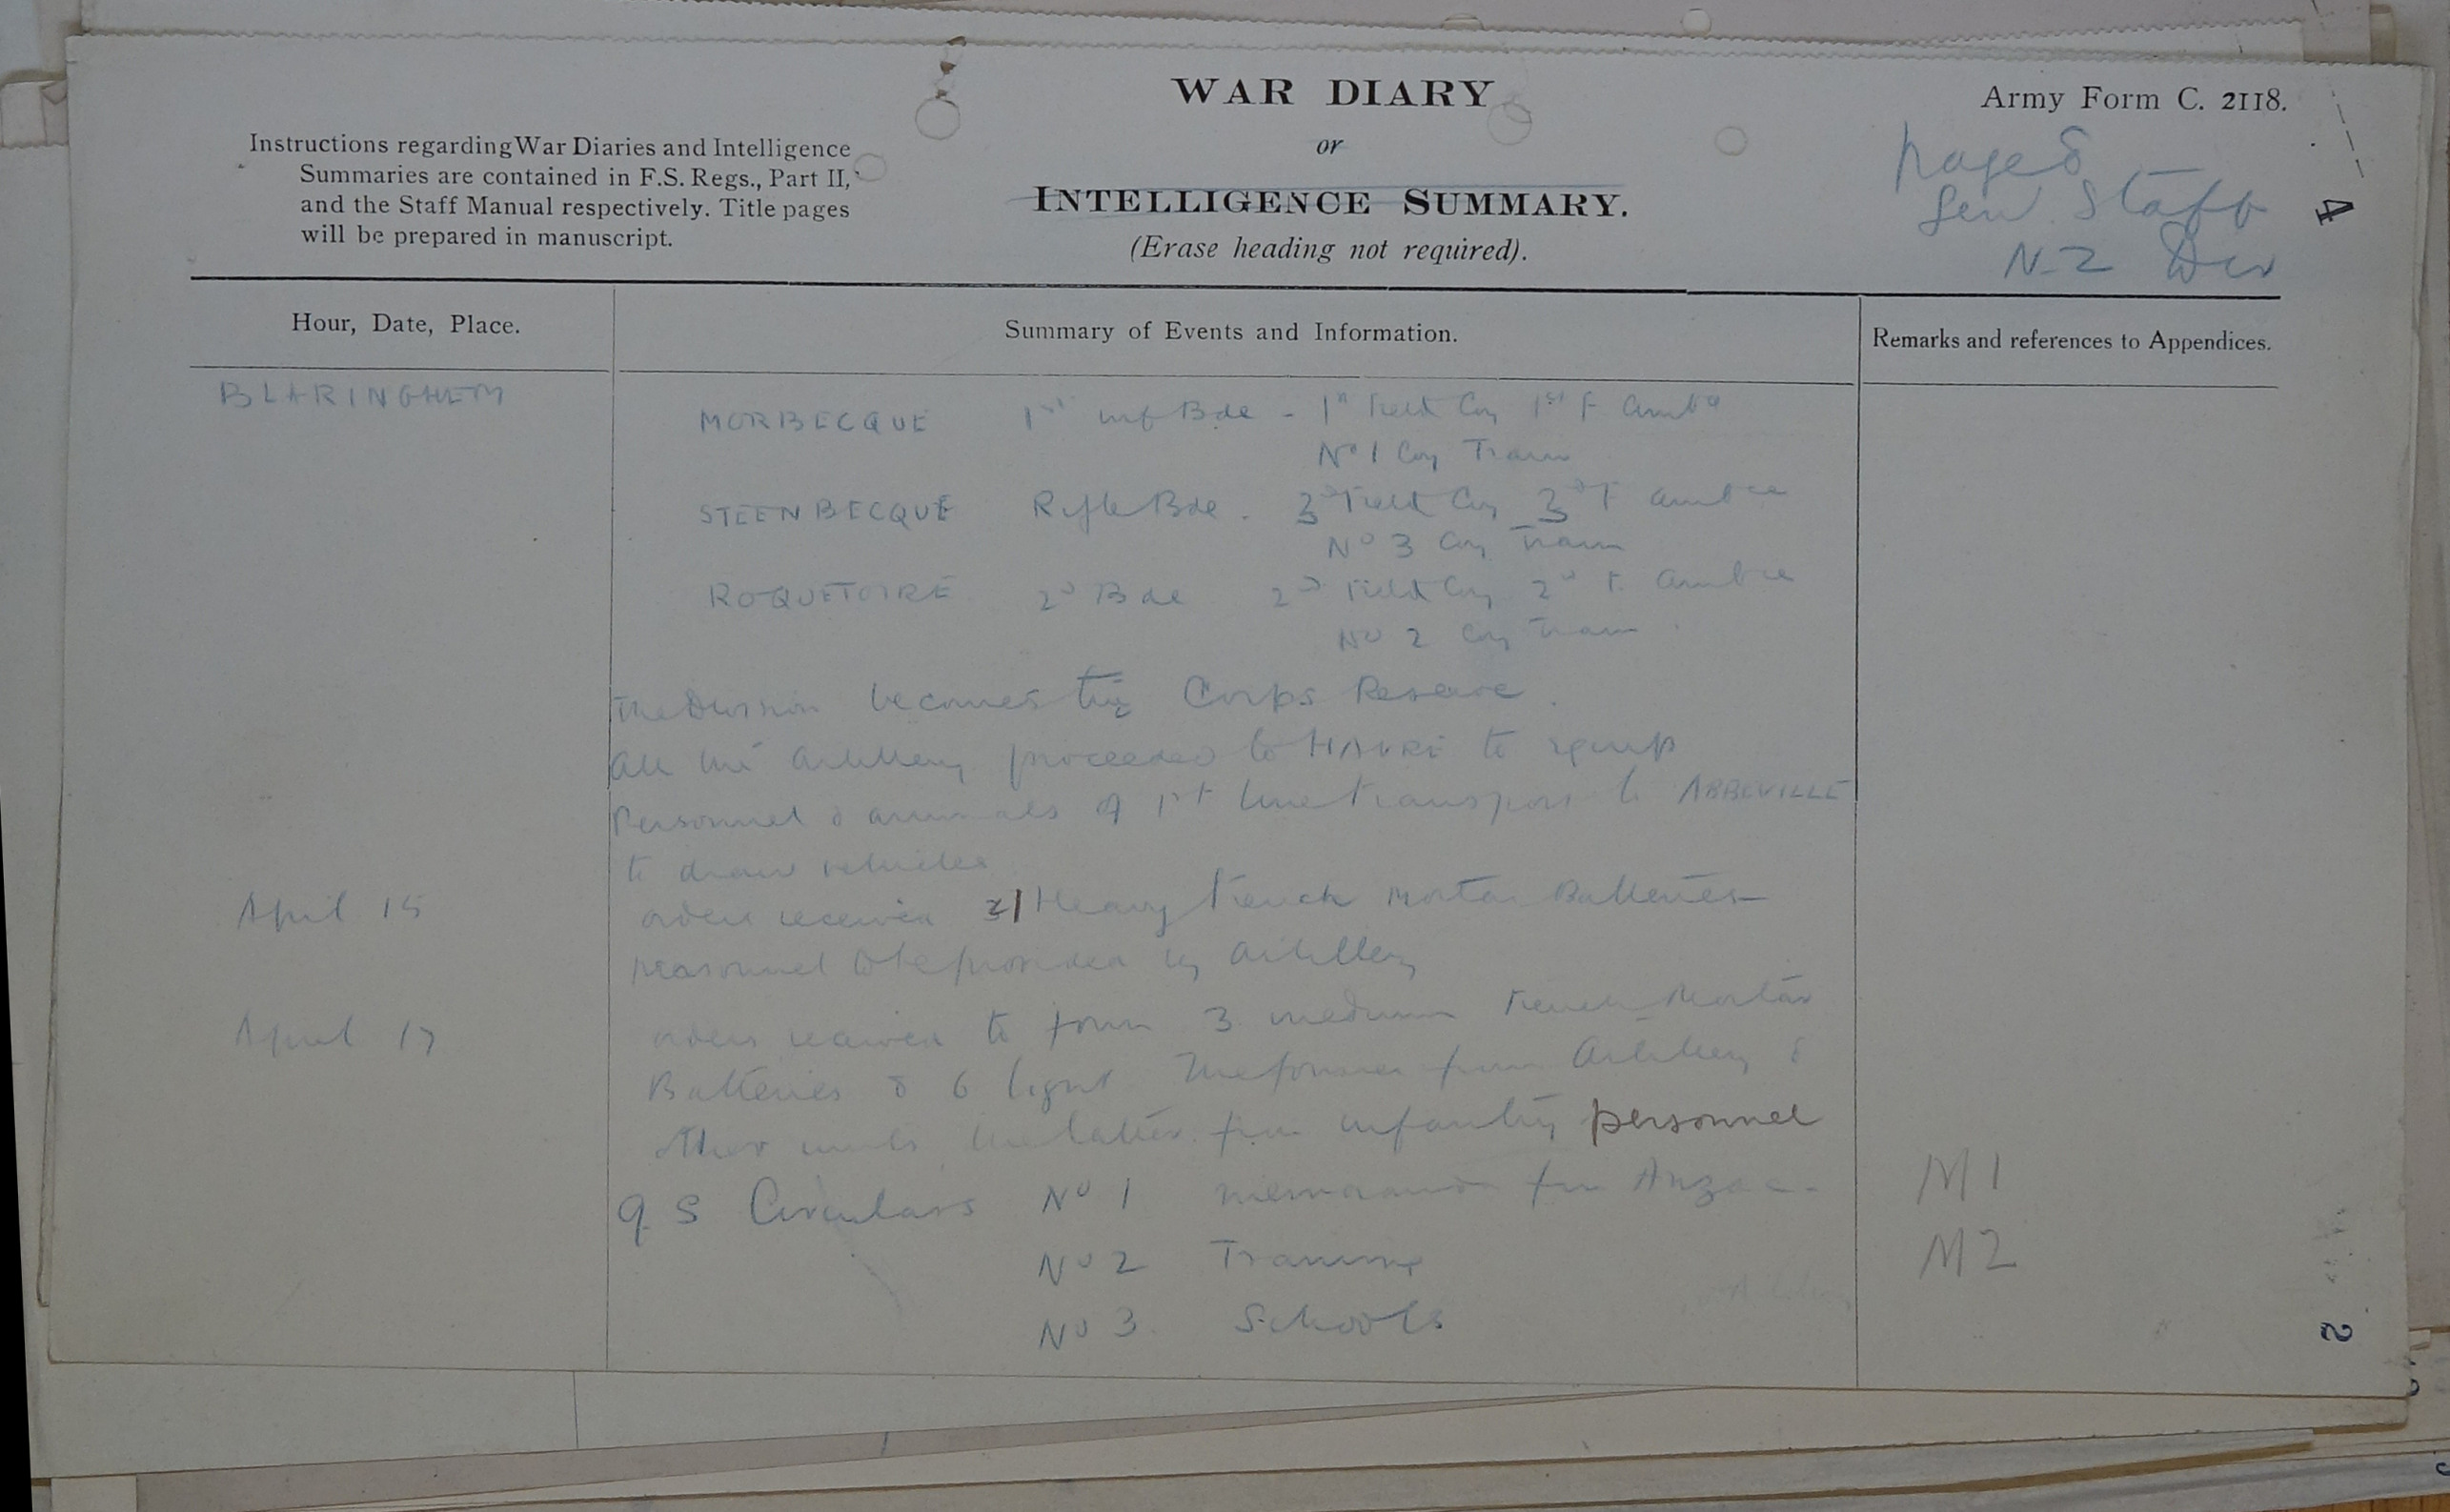 WAR DIARY
or
INTELLIGENCE SUMMARY.
(Erase heading not required).
Army Form C. 2118.
Instructions regarding War Diaries and Intelligence
Summaries are contained in F.S. Regs., Part II,
and the Staff Manual respectively. Title pages
will be prepared in manuscript.
page 8
Gen Staff
N-Z Div
4
Hour, Date, Place.
Summary of Events and Information.
Remarks and references to Appendices.
BLARINGHEM
MORBECQUE 1st inf Bde - 1st Field Coy 1st F Ambce
No 1 Coy Train
STEENBECQUE Rifle Bde - 3d Field Coy 3d F Ambce
No 3 Coy Train
ROQUETOIRE 2d Bde 2d Field Coy 2d F. Ambce
No 2 Coy Train
The Division becomes the Corps Reserve.
All the Artillery proceeded to HAVRE to equip
Personnel & animals of 1st line transport to ABBEVILLE
to draw vehicles
April 15
orders received 1 Heavy Trench Mortar Batteries
personnel to be provided by Artillery
April 17
orders received to form 3 medium Trench Mortar
Batteries & 6 light The former from Artillery &
other units the latter from infantry personnel
G S Circulars No 1 memorandum for Anzac -
M1
No 2 Training
M2
No 3. Schools
2